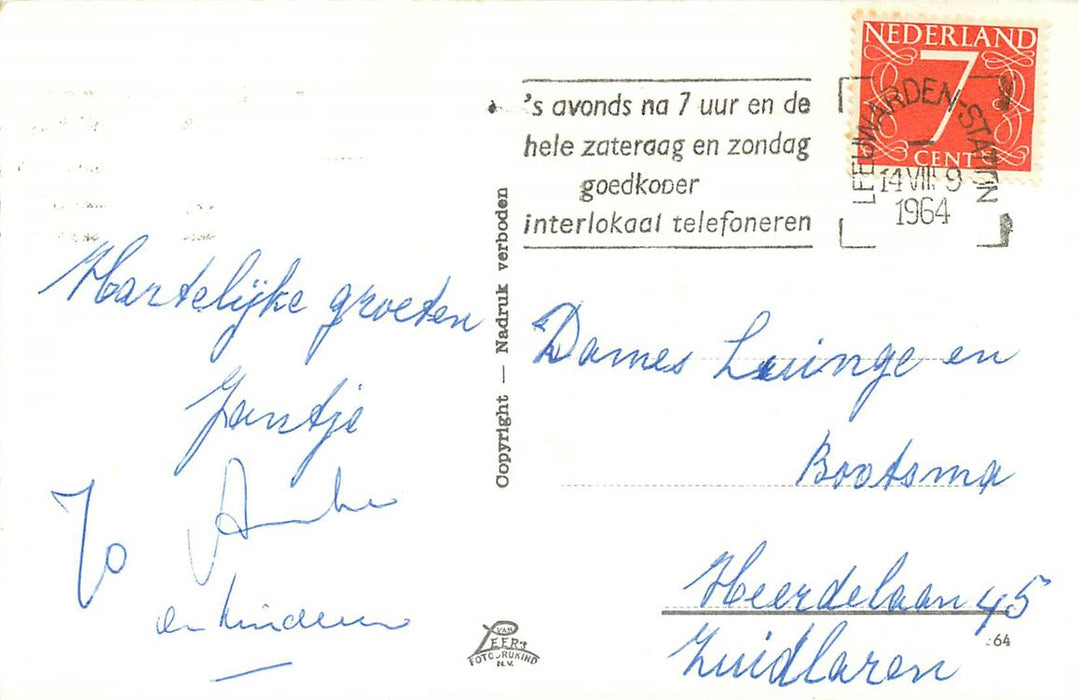 NEDERLAND
7
CENT
's avonds na 7 uur en de
hele zateraag en zondag
goedkoper
interlokaal telefoneren
LEEUWARDEN-STATION
14 VIII 9
1964
Hartelijke groeten
Jantje
Jo
en kinderen
Copyright — Nadruk verboden
Dames Luinge en
Bootsma
Heerdelaan 45
Zuidlaren
VAN
LEER'S
FOTODRUKIND
N.V.
64